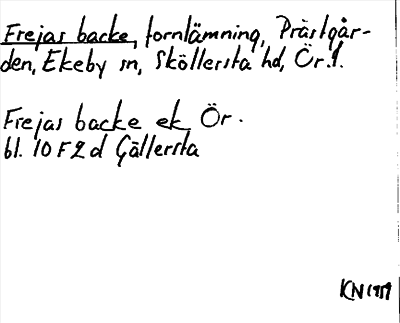 Frejas backe, fornlämning, Prästgår-
den, Ekeby sn, Sköllersta hd, Ör. l.
Frejas backe ek Ör.
bl. 10 F 2 d Gällersta
KN 1959